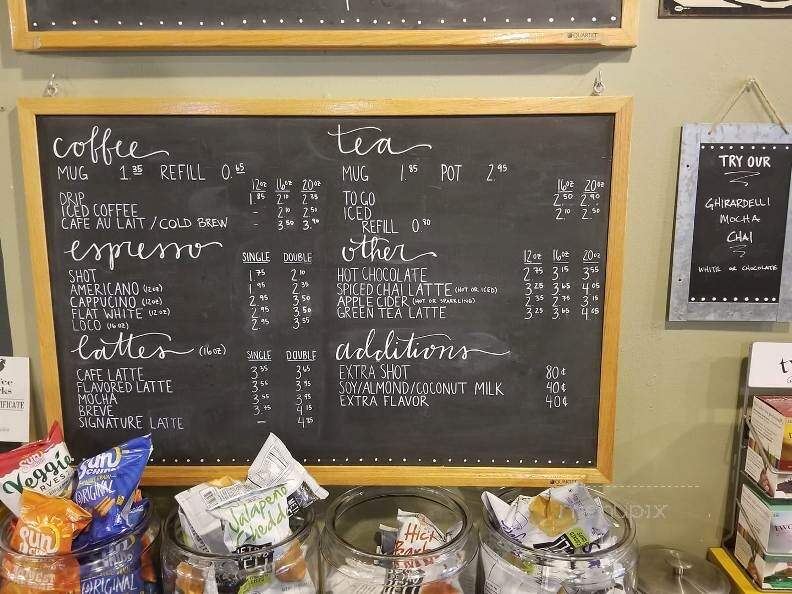 QUARTET
coffee
MUG 1.35 REFILL 0.65
12oz 16oz 20oz
DRIP 1.85 2.10 2.35
ICED COFFEE - 2.10 2.50
CAFE AU LAIT / COLD BREW - 3.50 3.90
espresso
SINGLE DOUBLE
SHOT 1.75 2.10
AMERICANO (12oz) 1.95 2.35
CAPPUCINO (12oz) 2.95 3.50
FLAT WHITE (12oz) 2.95 3.50
LOCO (16oz) 2.95 3.55
lattes (16oz)
SINGLE DOUBLE
CAFE LATTE 3.35 3.65
FLAVORED LATTE 3.55 3.95
MOCHA 3.55 3.95
BREVE 3.75 4.15
SIGNATURE LATTE - 4.25
tea
MUG 1.85 POT 2.95
16oz 20oz
TO GO 2.50 2.90
ICED 2.10 2.50
REFILL 0.80
other
12oz 16oz 20oz
HOT CHOCOLATE 2.75 3.15 3.55
SPICED CHAI LATTE (HOT OR ICED) 3.25 3.65 4.05
APPLE CIDER (HOT OR SPARKLING) 2.35 2.75 3.15
GREEN TEA LATTE 3.25 3.65 4.05
additions
EXTRA SHOT 80¢
SOY/ALMOND/COCONUT MILK 40¢
EXTRA FLAVOR 40¢
QUARTET
TRY OUR
GHIRARDELLI
MOCHA
CHAI
WHITE OR CHOCOLATE
Veggie
Sun
CHIPS
ORIGINAL
Sun
CHIPS
ORIGINAL
Jalapeño
Chedd